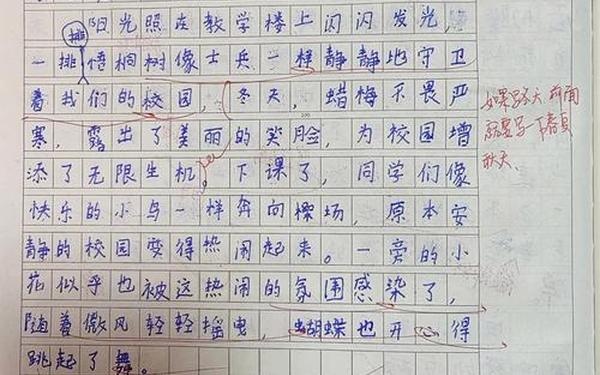 阳光照在教学楼上闪闪发光，
排
一排梧桐树像士兵一样静静地守卫
着我们的校园，冬天，蜡梅不畏严
寒，露出了美丽的笑脸，为校园增
添了无限生机。下课了，同学们像
快乐的小鸟一样奔向操场，原本安
静的校园变得热闹起来。一旁的小
花似乎也被这热闹的氛围感染了，
随着微风轻轻摇曳，蝴蝶也开得
跳起了舞。
如果写冬天，前面
就要写一下春夏
秋天。